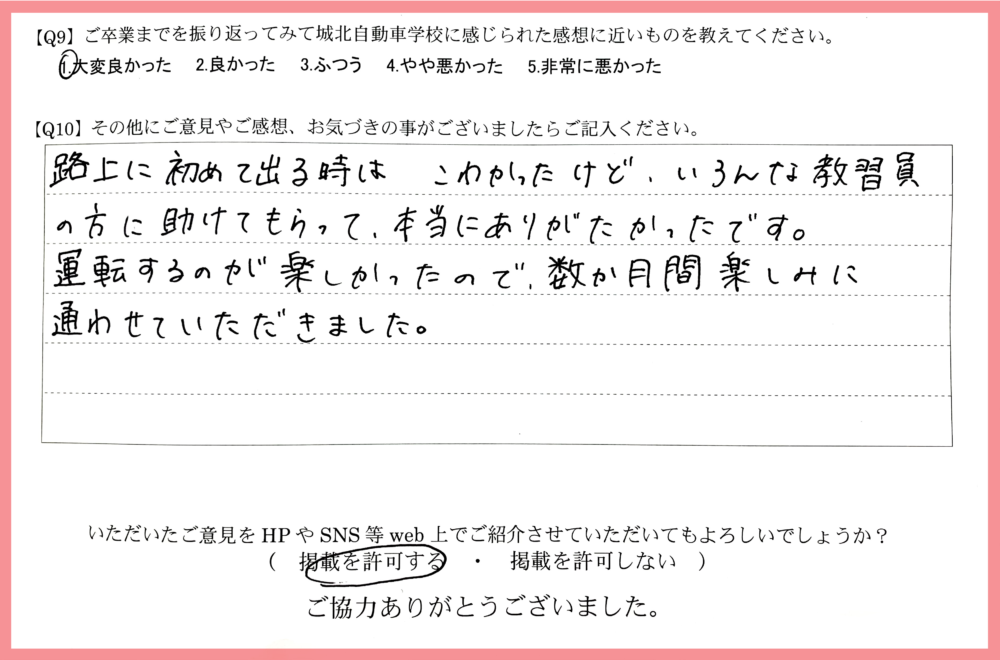 【Q9】ご卒業までを振り返ってみて城北自動車学校に感じられた感想に近いものを教えてください。
1.大変良かった 2.良かった 3.ふつう 4.やや悪かった 5.非常に悪かった
【Q10】その他にご意見やご感想、お気づきの事がございましたらご記入ください。
路上に初めて出る時は こわかったけど、いろんな教習員
の方に助けてもらって、本当にありがたかったです。
運転するのが楽しかったので、数か月間楽しみに
通わせていただきました。
いただいたご意見をHPやSNS等web上でご紹介させていただいてもよろしいでしょうか?
( 掲載を許可する ・ 掲載を許可しない )
ご協力ありがとうございました。